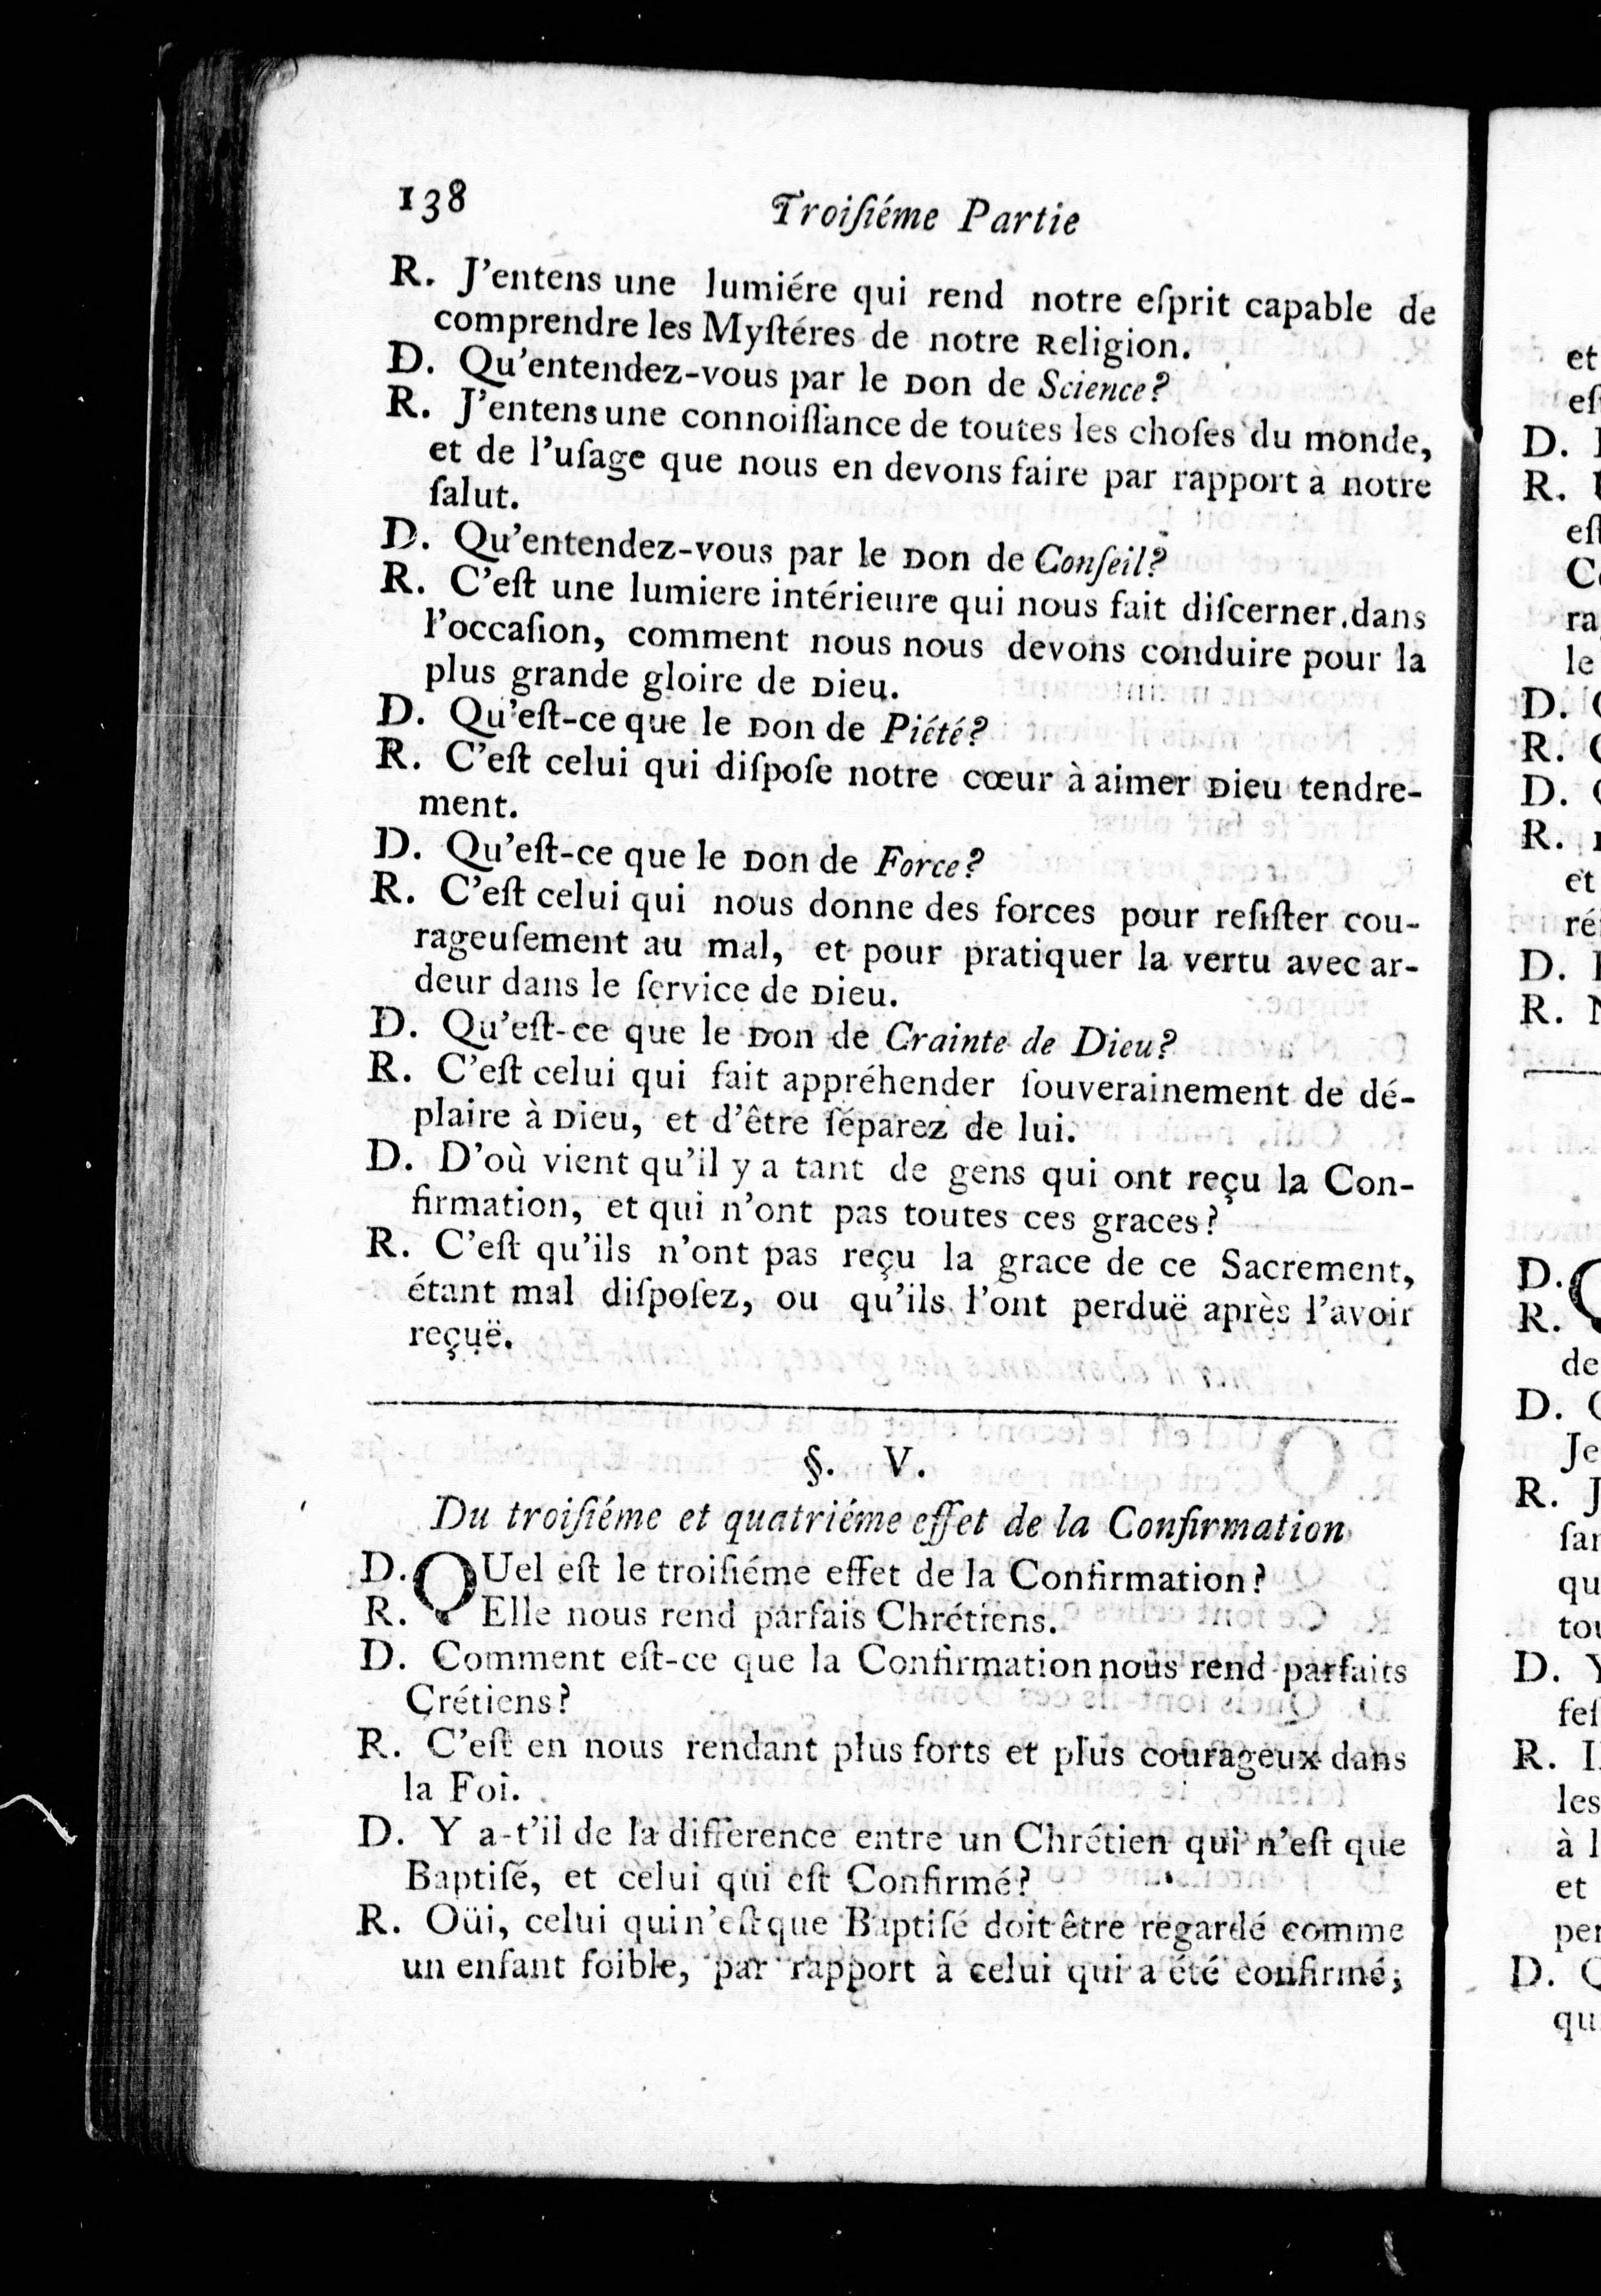 138 Troiſiéme Partie
R. J'entens une lumiére qui rend notre eſprit capable de
comprendre les Myſtéres de notre Religion.
D. Qu'entendez-vous par le Don de Science?
R. J'entens une connoiſſance de toutes les choſes du monde,
et de l'uſage que nous en devons faire par rapport à notre
ſalut.
D. Qu'entendez-vous par le Don de Conſeil?
R. C'eſt une lumiere intérieure qui nous fait diſcerner dans
l'occaſion, comment nous nous devons conduire pour la
plus grande gloire de Dieu.
D. Qu'eſt-ce que le Don de Piété?
R. C'eſt celui qui diſpoſe notre cœur à aimer Dieu tendre-
ment.
D. Qu'eſt-ce que le Don de Force?
R. C'eſt celui qui nous donne des forces pour reſiſter cou-
rageuſement au mal, et pour pratiquer la vertu avec ar-
deur dans le ſervice de Dieu.
D. Qu'eſt-ce que le Don de Crainte de Dieu?
R. C'eſt celui qui fait appréhender ſouverainement de dé-
plaire à Dieu, et d'être ſéparez de lui.
D. D'où vient qu'il y a tant de gens qui ont reçu la Con-
firmation, et qui n'ont pas toutes ces graces?
R. C'eſt qu'ils n'ont pas reçu la grace de ce Sacrement,
étant mal diſpoſez, ou qu'ils l'ont perduë après l'avoir
reçuë.
§. V.
Du troiſiéme et quatriéme effet de la Confirmation
D. QUel eſt le troiſiéme effet de la Confirmation?
R. Elle nous rend parfais Chrétiens.
D. Comment eſt-ce que la Confirmation nous rend parfaits
Crétiens?
R. C'eſt en nous rendant plus forts et plus courageux dans
la Foi.
D. Y a-t'il de la difference entre un Chrétien qui n'eſt que
Baptiſé, et celui qui eſt Confirmé?
R. Oüi, celui qui n'eſt que Baptiſé doit être regardé comme
un enfant foible, par rapport à celui qui a été confirmé;